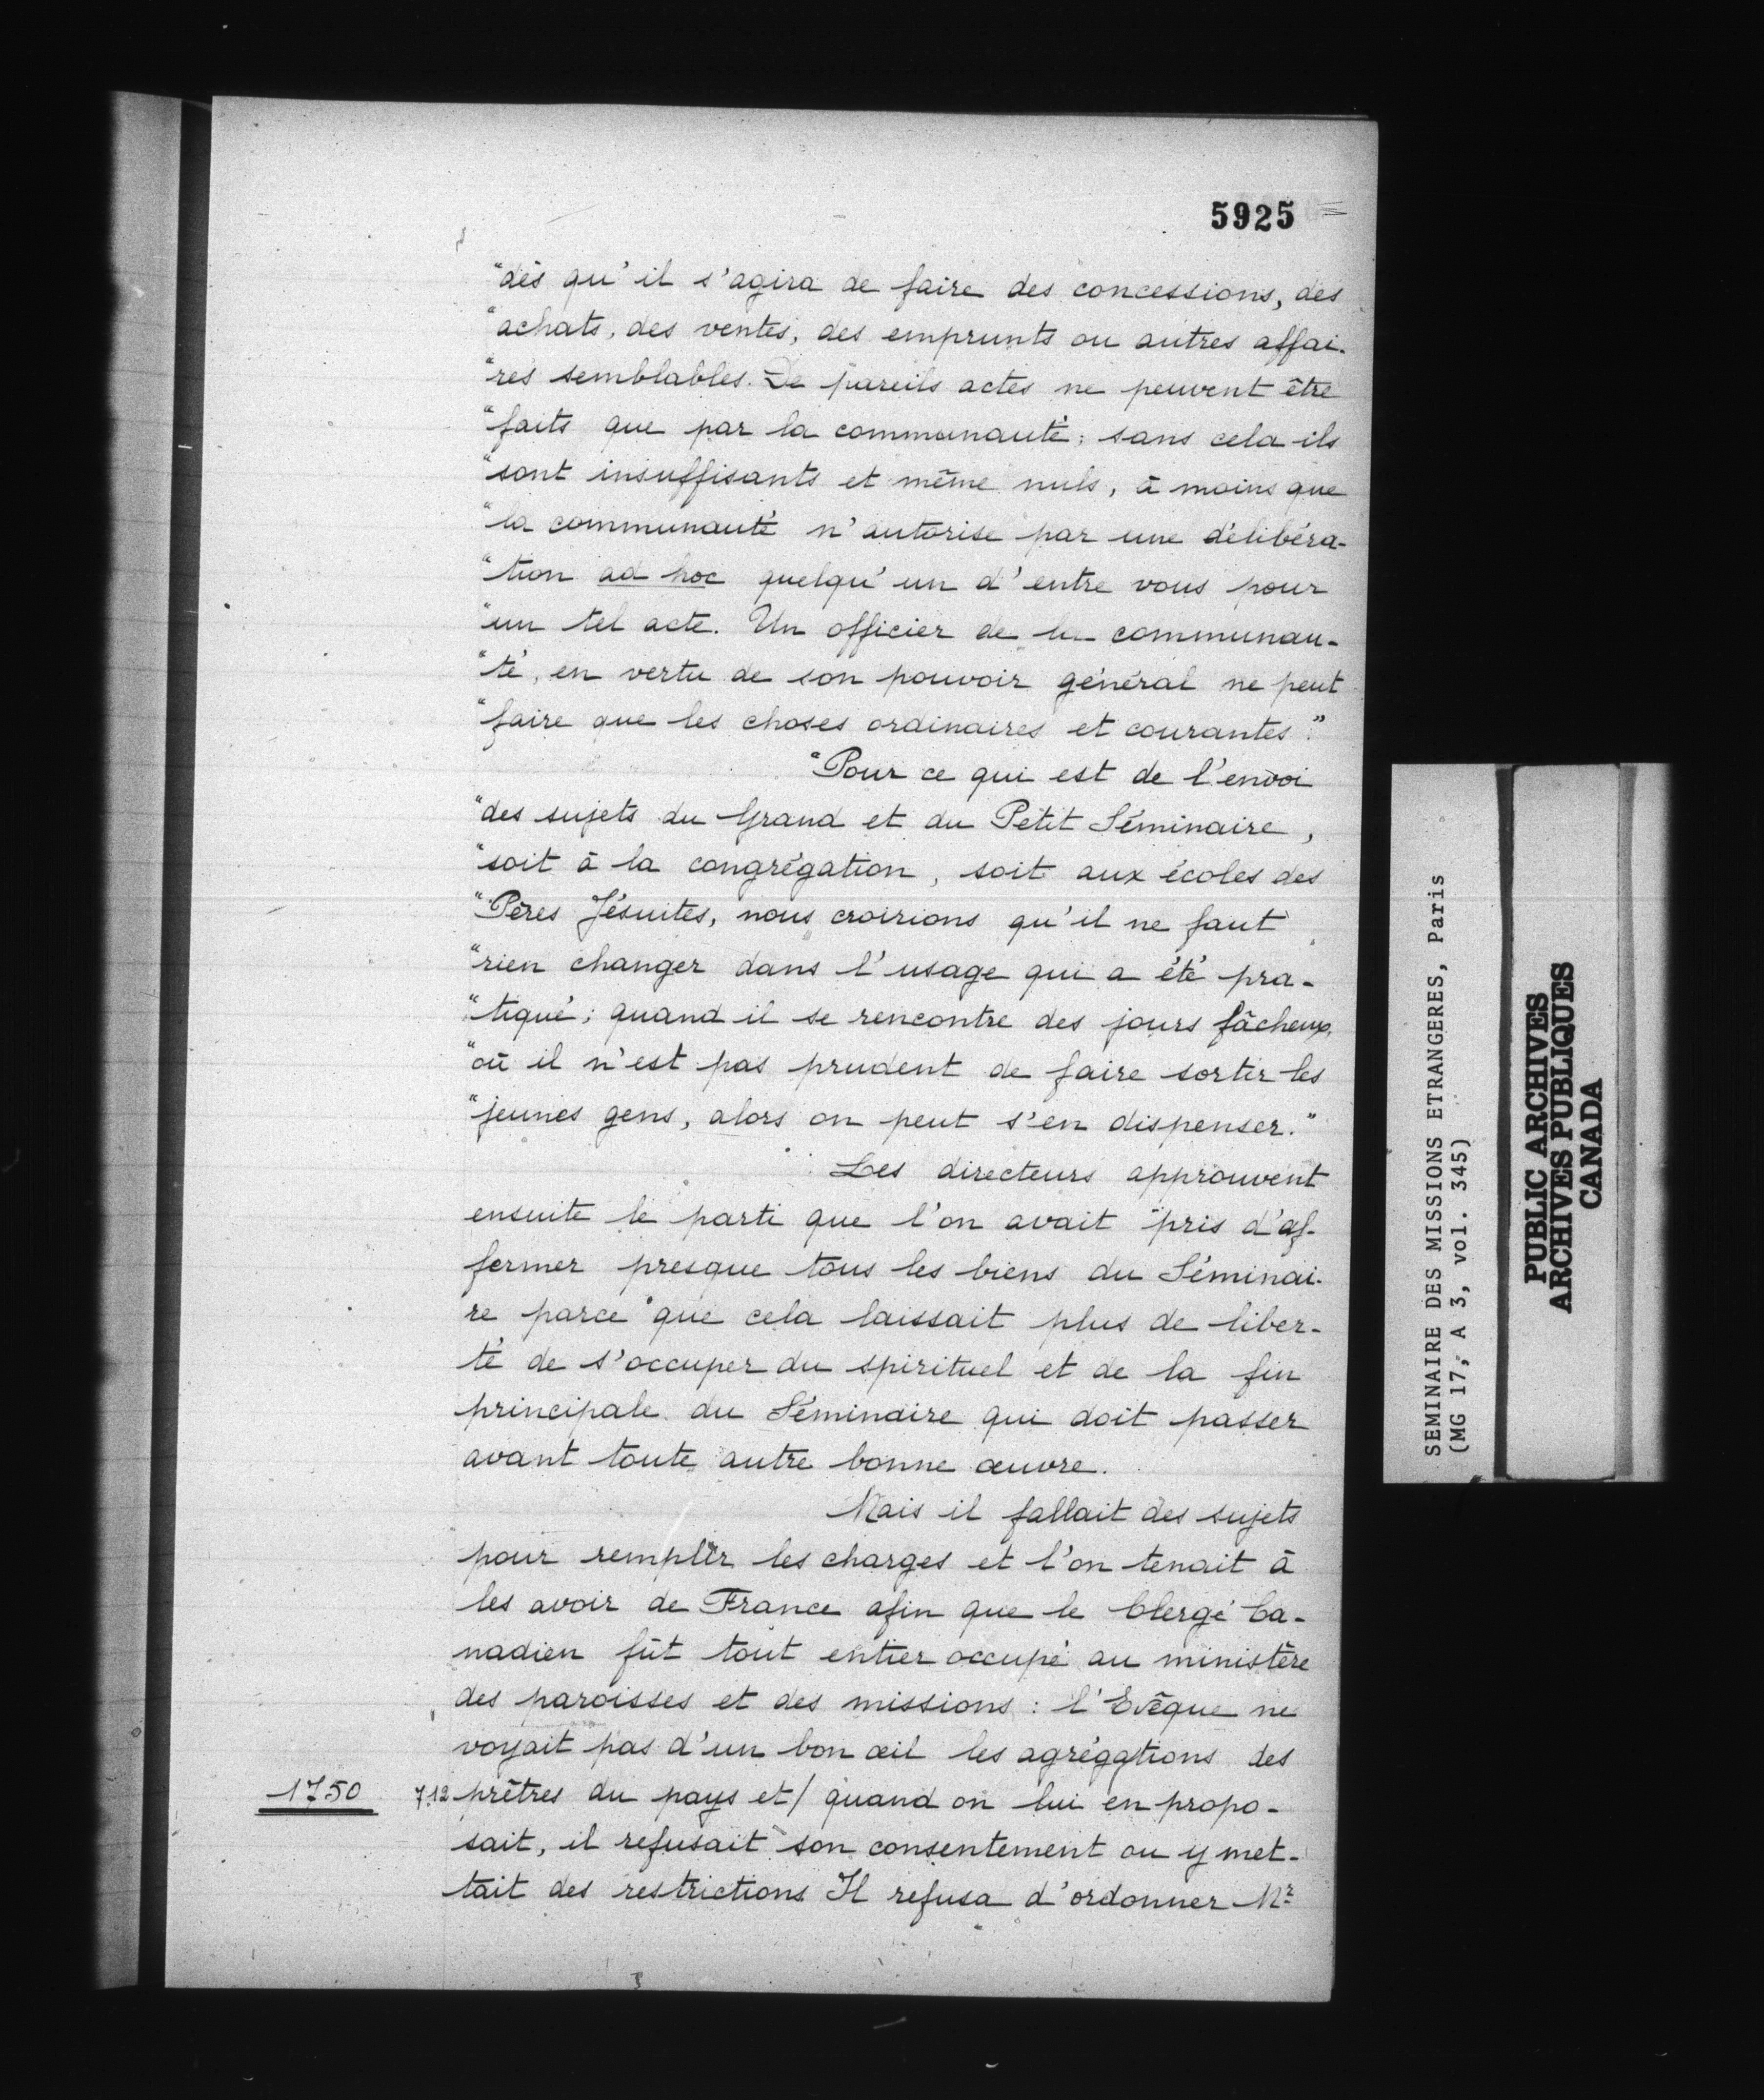 5925
"dès qu'il s'agira de faire des concessions, des
"achats, des ventes, des emprunts ou autres affai-
"res semblables. De pareils actes ne peuvent être
"faits que par la communauté; sans cela ils
"sont insuffisants et même nuls, à moins que
"la communauté n'autorise par une délibéra-
"tion ad hoc quelqu'un d'entre vous pour
"un tel acte. Un officier de la communau-
"té, en vertu de son pouvoir général ne peut
"faire que les choses ordinaires et courantes."
"Pour ce qui est de l'envoi
"des sujets du Grand et du Petit Séminaire,
"soit à la congrégation, soit aux écoles des
"Pères Jésuites, nous croirions qu'il ne faut
"rien changer dans l'usage qui a été pra-
"tiqué; quand il se rencontre des jours fâcheux,
"où il n'est pas prudent de faire sortir les
"jeunes gens, alors on peut s'en dispenser."
Les directeurs approuvent
ensuite le parti que l'on avait pris d'af-
fermer presque tous les biens du Séminai-
re parce que cela laissait plus de liber-
té de s'occuper du spirituel et de la fin
principale du Séminaire qui doit passer
avant toute autre bonne œuvre.
Mais il fallait des sujets
pour remplir les charges et l'on tenait à
les avoir de France afin que le Clergé Ca-
nadien fût tout entier occupé au ministère
des paroisses et des missions : l'Evêque ne
voyait pas d'un bon œil les agrégations des
1750 712 prêtres du pays et/ quand on lui en propo-
sait, il refusait son consentement ou y met-
tait des restrictions Il refusa d'ordonner Mr
SEMINAIRE DES MISSIONS ETRANGERES, Paris
(MG 17, A 3, vol. 345)
PUBLIC ARCHIVES
ARCHIVES PUBLIQUES
CANADA